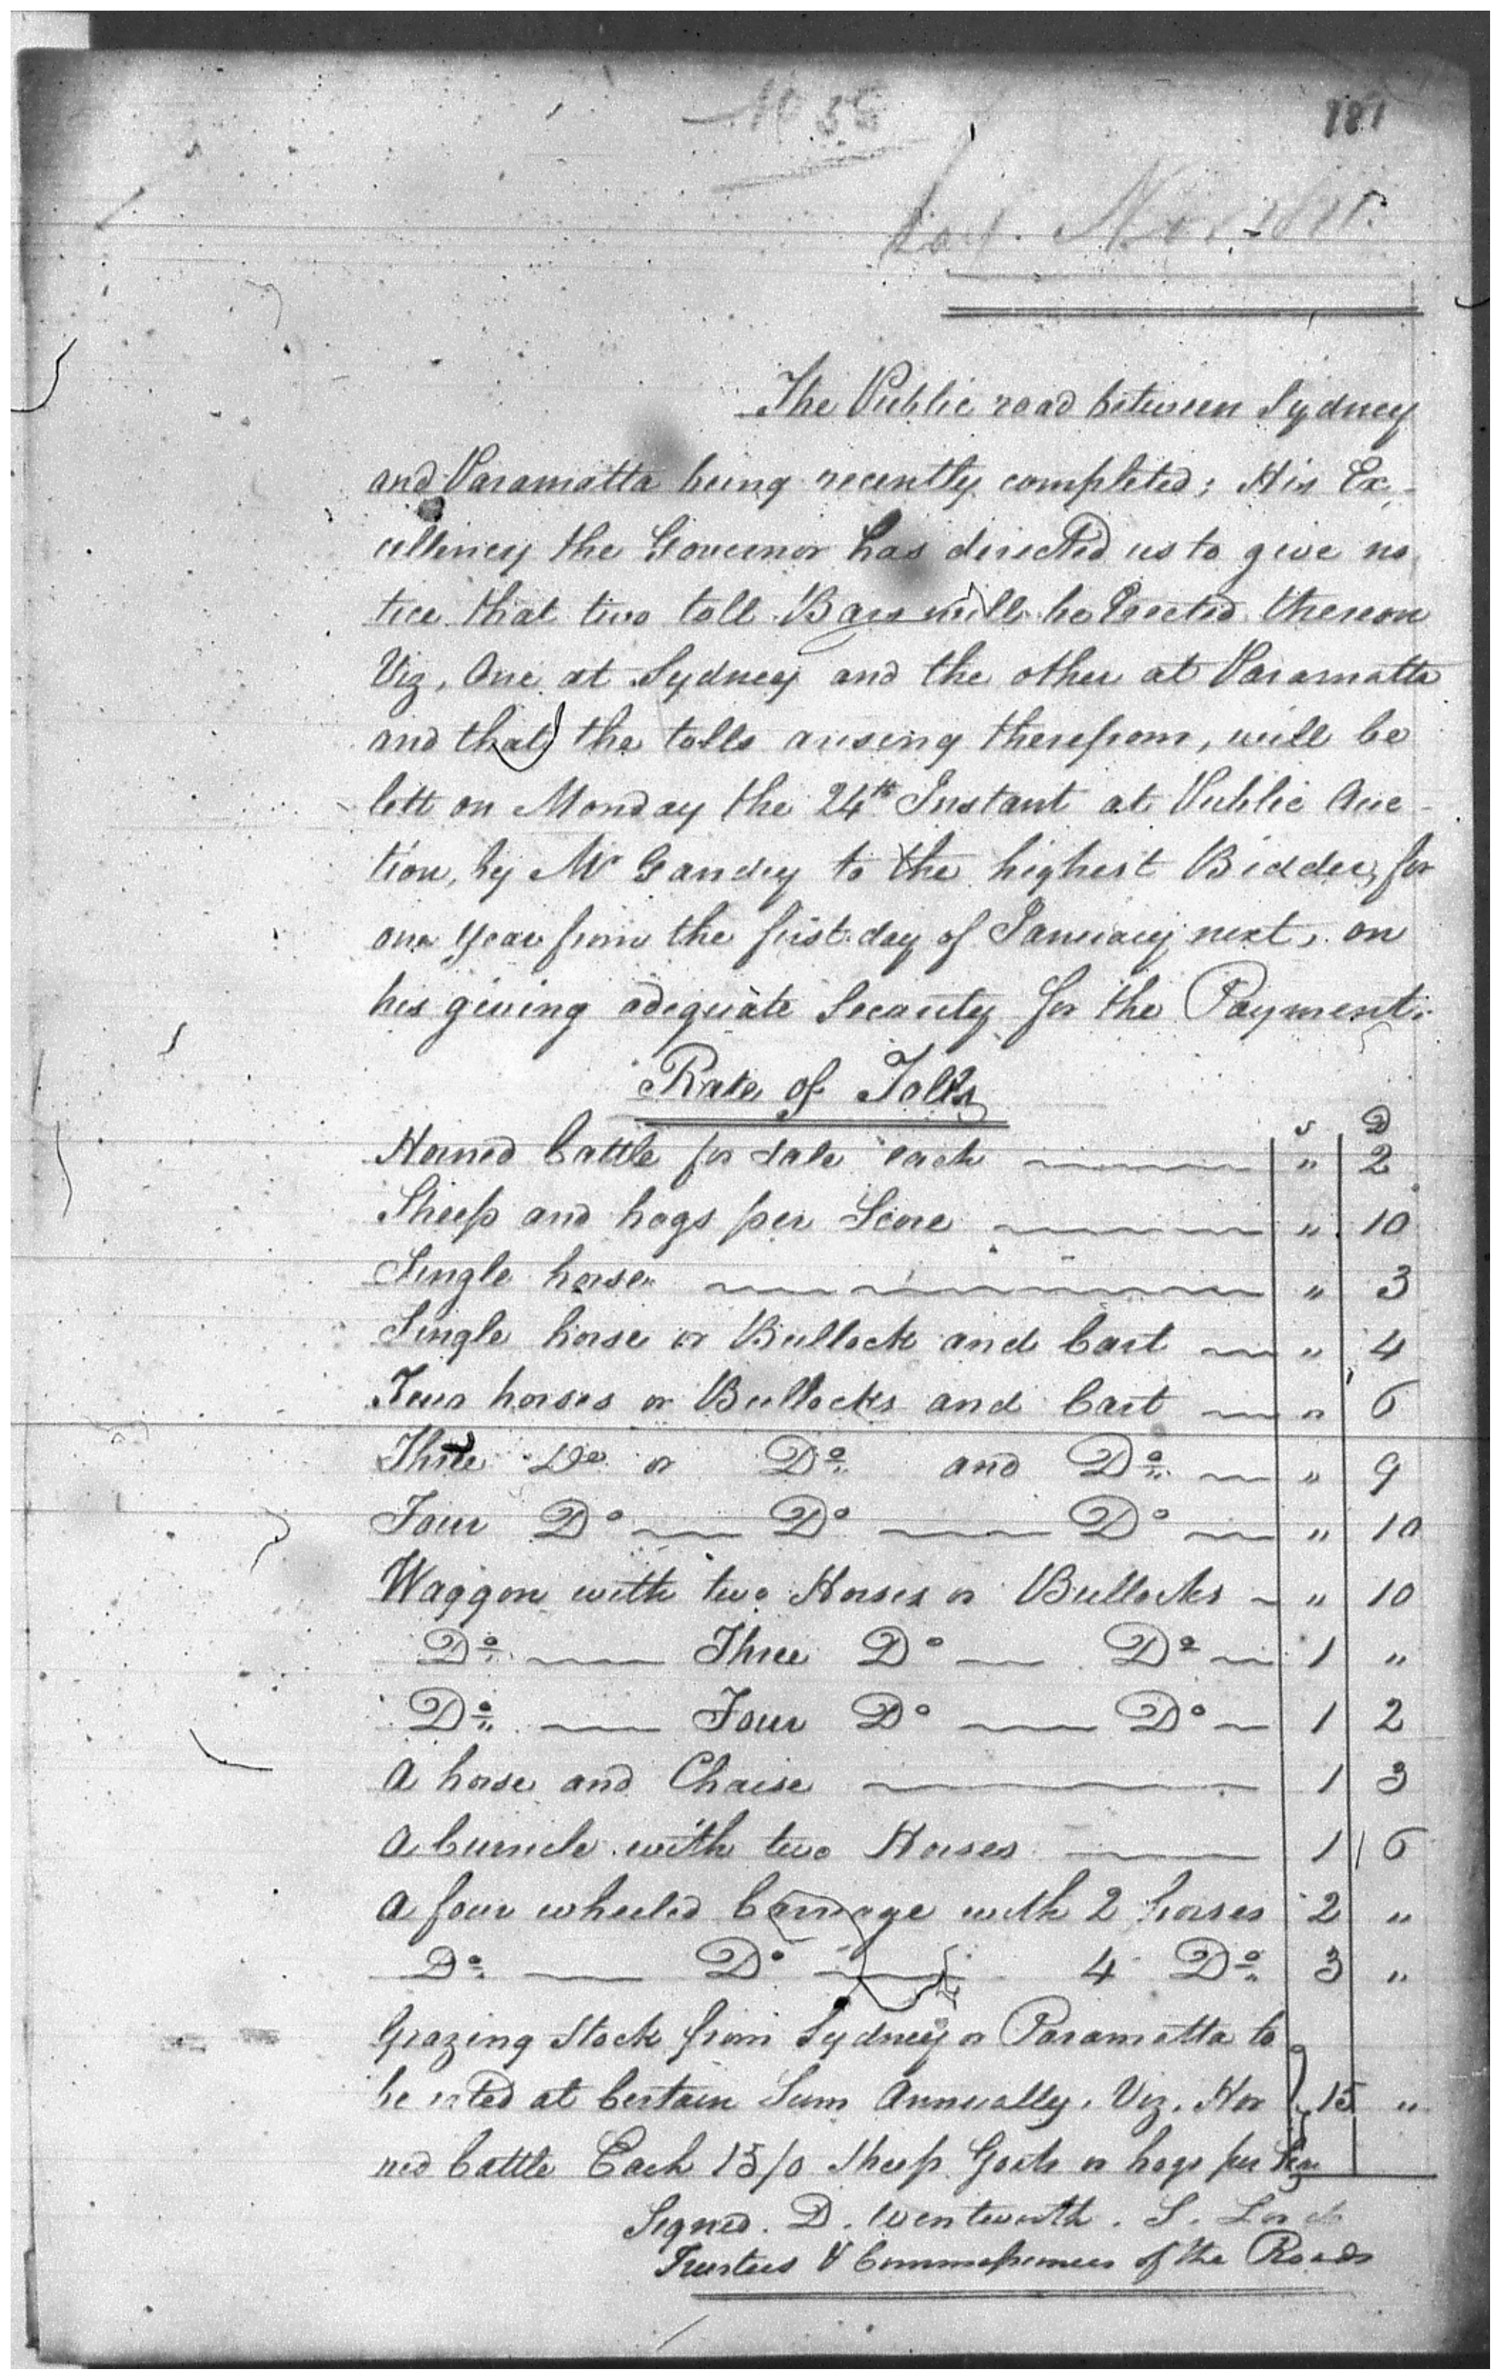 181
Nov
The Public road between Sydney
and Paramatta being recently completed; His Ex-
cellency the Governor has directed us to give no
tice that two toll Bars will be Erected thereon
Viz, One at Sydney and the other at Paramatta
and that the tolls arising therefrom, will be
lett on Monday the 24th Instant at Public Auc-
tion, by Mr Gandry to the highest Bidder, for
one Year from the first day of January next, on
his giving adequate Security for the Payment.
Rate of Tolls
S D
Horned Cattle for Sale each " 2
Sheep and hogs per Score " 10
Single horse " 3
Single horse or Bullock and Cart " 4
horses or Bullocks and Cart " 6
Three Do or Do and Do " 9
Four Do Do Do " 10
Waggon with two Horses or Bullocks " 10
Do Three Do Do 1 "
Do Four Do Do 1 2
A horse and Chaise 1 3
A Curricle with two Horses 1 6
A four wheeled Carriage with 2 horses 2 "
Do Do 4 Do 3 "
Grazing Stock from Sydney or Paramatta to
be rated at Certain Sum Annually, Viz. Hor 15 "
ned Cattle Each 15/0 Sheep Goats or hogs per Score
Signed. D. Wentworth. S. Lord
Trustees & Commissioners of the Roads